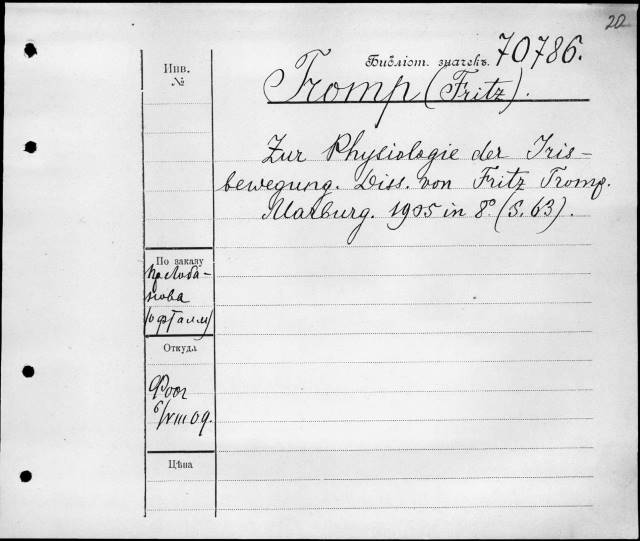 20
Инв.
№
Библіот. значекъ. 70786.
Tromp (Fritz).
Zur Physiologie der Iris-
bewegung. Diss. von Fritz Tromp.
Marburg. 1905 in 8° (S. 63).
По заказу
пр. Лоба-
нова
(офталм)
Откуда
Фоог
6/VIII 09.
Цѣна